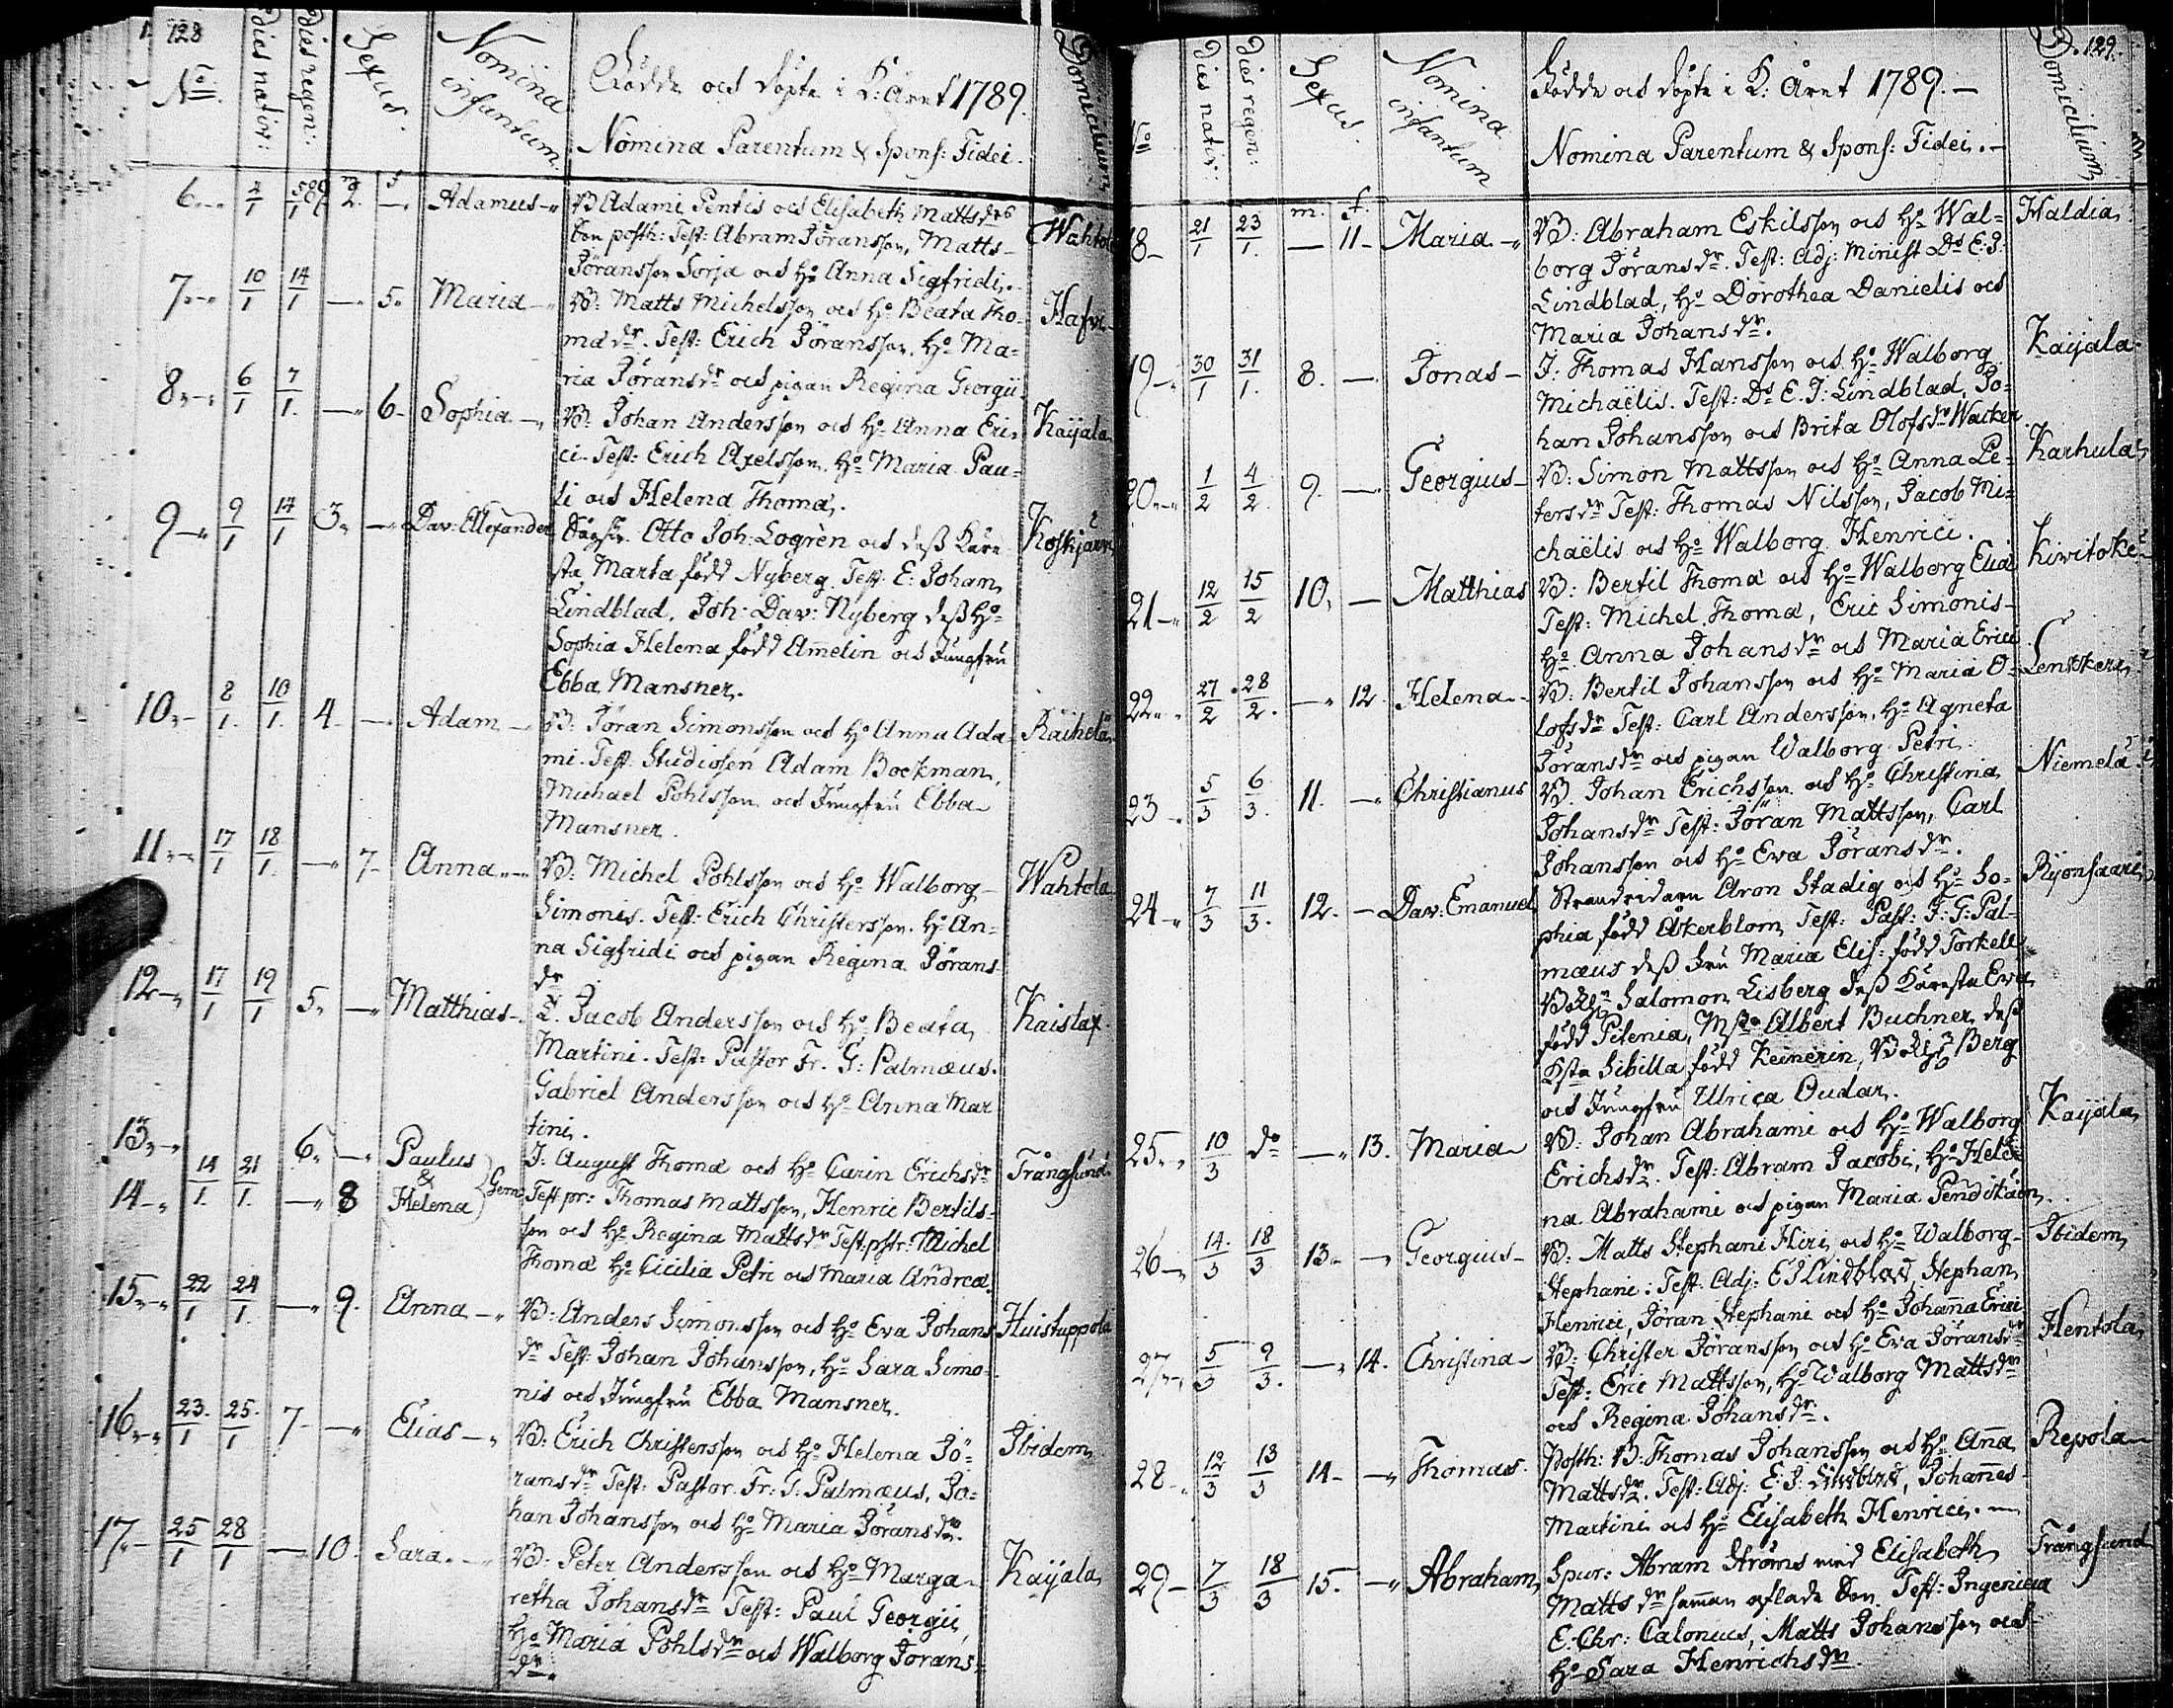 128
No.
dies nativ:
dies regen:
Sexus.
Nomina infantum
Födde och döpte i K: Året 1789.
Nomina Parentum & Spons: Fidei.
Domicilium
6. 4/1 5/1 m 2. f — Adamus B Adami Pentis och Elisabeth Mattsdrs Wahtola
Son posth: Test: Abram Jöransson, Matts
Jöransson Sorja och Ho Anna Sigfridi.
7. 10/1 14/1 — 5. Maria B: Matts Michelsson och Ho Beata Tho= Hafvi
mæ dr. Test: Erich Jöransson. Ho Ma=
ria Jöransdr och pigan Regina Georgii.
8. 6/1 7/1. — 6. Sophia B: Johan Andersson och Ho Anna Eri= Kaijala
ci. Test: Erich Axelsson. Ho Maria Pau=
li och Helena Thomæ.
9. 9/1 14/1 3. — Dav: Allexander Otto Joh: Logrèn och dess Käre= Koskijärvi
sta Marta född Nyberg. Test: E: Johan
Lindblad. Joh: Dav: Nyberg dess Ho
Sophia Helena född Amelin och Jungfru
Ebba Mansner.
10. 8/1. 10/1. 4. — Adam B: Jöran Simonsson och Ho Anna Ada= Räihelä
mi. Test: Studiosen Adam Bockman,
Michael Pohlsson och Jungfru Ebba
Mansner.
11. 17/1 18/1. — 7. Anna B: Michel Pohlsson och Ho Walborg Wahtola
Simonis. Test: Erich Christersson. Ho An=
na Sigfridi och pigan Regina Jörans
dr
12. 17/1 19/1 5. — Matthias. Jacob Andersson och Ho Beata Kaislax.
Martini. Test: Pastor Fr. G: Palmæus.
Gabriel Andersson och Ho Anna Mar
tini.
13. 6. — Paulus J: August Thomæ och Ho Carin Erichsdr Trångsund
14/1. 21/1. &
14. — 8 Helena Gem: Test pr: Thomas Mattsson, Henric Bertils=
son och Ho Regina Mattsdr Test: pstr: Michel
Thomæ Ho Cicilia Petri och Maria Andreæ.
15. 22/1 24/1. — 9. Anna B: Anders Simonsson och Ho Eva Johans Huistuppola
dr Test: Johan Johansson, Ho Sara Simo=
nis och Jungfru Ebba Mansner.
16. 23/1. 25/1 7. — Elias B: Erich Christersson och Ho Helena Jö= Ibidem
ransdr Test: Pastor Fr: G: Palmæus, Jo=
han Johansson och Ho Maria Jöransdr.
17. 25/1 28/1 — 10. Sara. B: Peter Andersson och Ho Marga= Kaijala
retha Johansdr Test: Paul Georgii,
Ho Maria Pohlsdr och Walborg Jörans=
dr.
129.
No
dies nativ:
dies regen:
Sexus.
Nomina infantum
Födde och döpte i K: Året 1789.
Nomina Parentum & Spons: Fidei.
Domicilium
18 21/1 23/1. m. — f. 11. Maria B: Abraham Eskilsson och Ho Wal= Haldia
borg Jöransdr. Test: Adj: Minist Ds E: J:
Lindblad, Ho Dorothea Danielis och
Maria Johansdr.
19 30/1 31/1. 8. — Jonas J: Thomas Hansson och Ho Walborg Kaijala
Michaëlis. Test: Ds E. J: Lindblad, Jo=
han Johansson och Brita Olofsdr Wacker
20. 1/2 4/2. 9. — Georgius B: Simon Mattsson och Ho Anna Pe= Karhula
tersdr Test: Thomas Nilsson, Jacob Mi=
chaëlis och Ho Walborg Henrici.
21 12/2 15/2 10. — Matthias B: Bertil Thomæ och Ho Walborg Eliæ
Test: Michel Thomæ, Eric Simonis
Ho Anna Johansdr och Maria Erici
22. 27/2 28/2. — 12 Helena B: Bertil Johansson och Ho Maria O=
lofsdr Test: Carl Andersson, Ho Agneta
Jöransdr och pigan Walborg Petri.
23 5/3 6/3. 11. — Christianus B: Johan Erichsson och Ho Christina Niemelä
Johansdr Test: Jöran Mattsson, Carl
Johansson och Ho Eva Jöransdr.
24 7/3 11/3. 12. — Dav: Emanuel Strandridaren Aron Stadig och Ho So=
phia född Åkerblom Test: Past: F: G: Pal=
mæus dess Fru Maria Elis: född Torkell
Salomon Lisberg dess Käresta Eva
född Pitenia, Mstr Albert Buchner dess
Ksta Sibilla född Keinerin, Berg
och Jungfru Ulrica Oudar.
25. 10/3 do — 13. Maria B: Johan Abrahami och Ho Walborg Kaijala
Erichsdr. Test: Abram Jacobi, Ho Hele=
na Abrahami och pigan Maria Pendikäin.
26 14/3 18/3 13. — Georgius B: Matts Stephani Hiri och Ho Walborg Ibidem
Stephani: Test: Adj: E J Lindblad, Stephan
Henrici, Jöran Stephani och Ho Johanna Erici
27. 5/3 9/3. — 14. Christina B: Christer Jöransson och Ho Eva Jöransdr Hentola
Test: Eric Mattsson, Ho Walborg Mattsdr
och Regina Johansdr.
28 12/3 13/3 14. — Thomas Posth: B: Thomas Johansson och Ho Anna Repola
Mattsdr. Test: Adj: E: J: Lindblad, Johannes
Martini och Ho Elisabeth Henrici.
29 7/3 18/3 15. — Abraham Spur: Abram Ströms med Elisabeth Trångsund
Matts dr samman aflade Son. Test:
E: Chr: Calonius, Matts Johansson och
Ho Sara Henrichsdr.